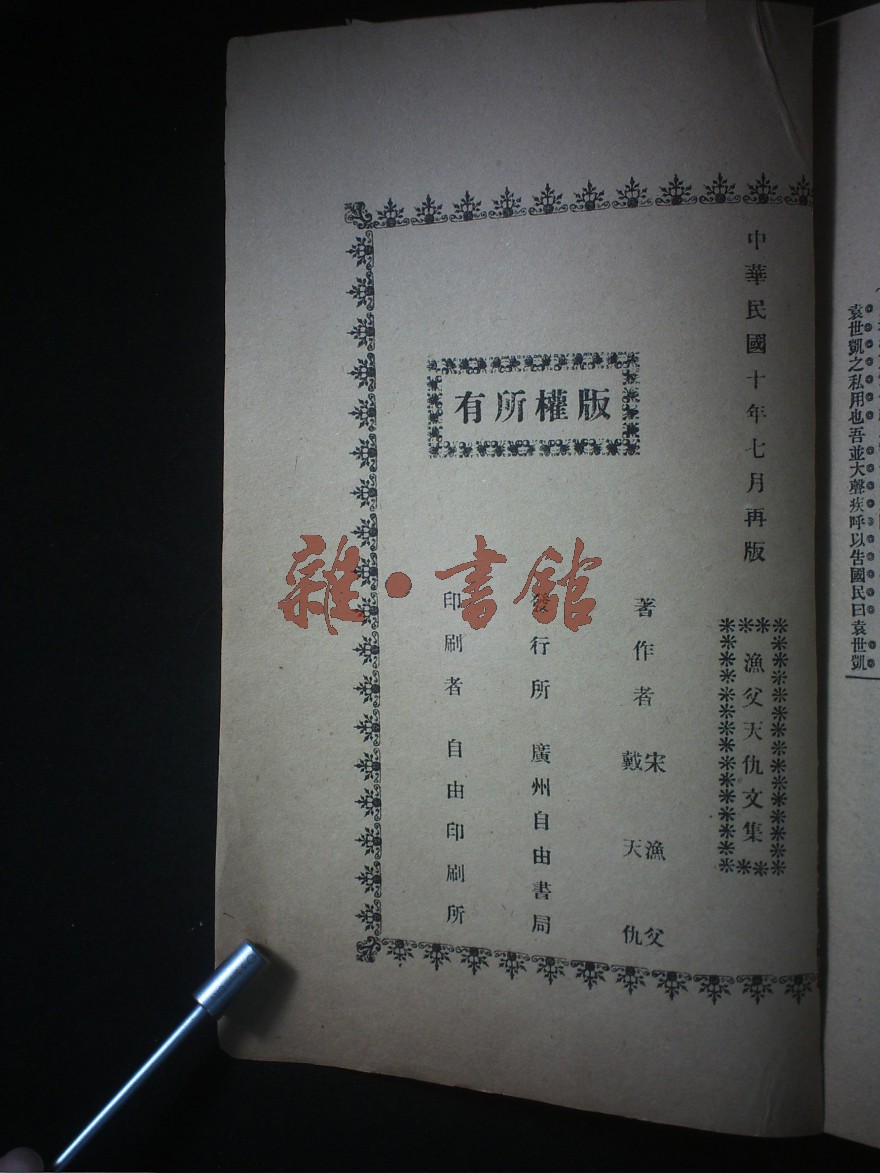 袁世凱之私用也吾並大聲疾呼以告國民曰袁世凱
中華民國十年七月再版
漁父天仇文集
版權所有
著作者 宋漁父
戴天仇
發行所 廣州自由書局
印刷者 自由印刷所
雜·書館